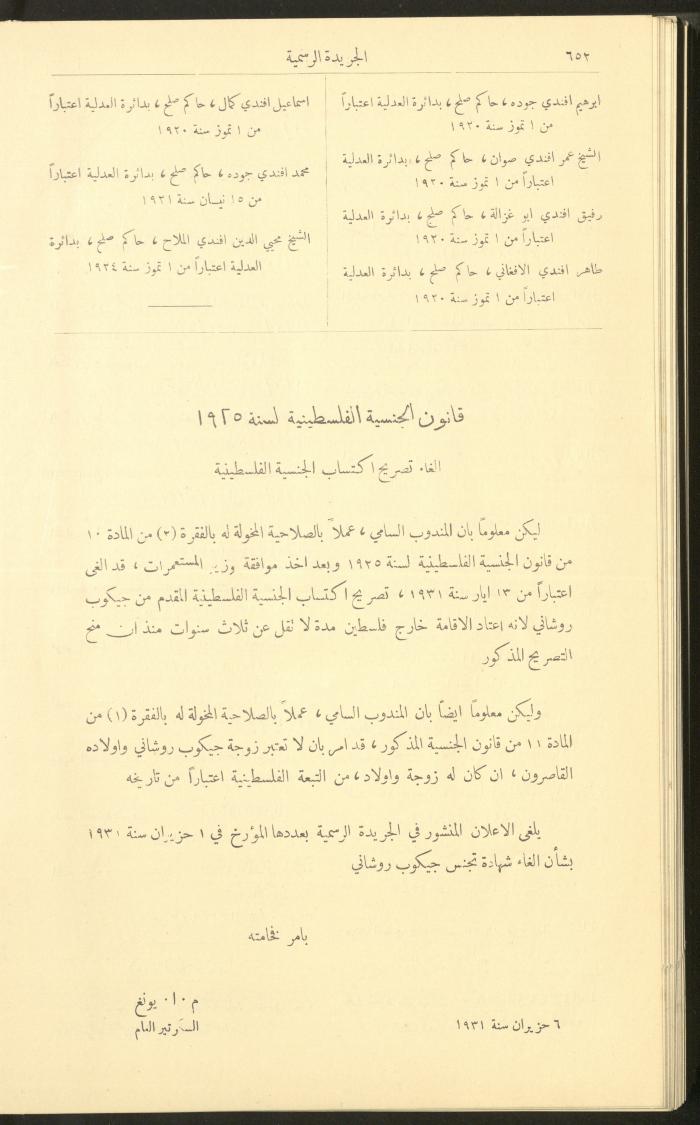 ٦٥٢
الجريدة الرسمية
ابرهيم افندي جوده، حاكم صلح، بدائرة العدلية اعتباراً
من ١ تموز سنة ١٩٢٠
الشيخ عمر افندي صوان، حاكم صلح، بدائرة العدلية
اعتباراً من ١ تموز سنة ١٩٢٠
رفيق افندي ابو غزالة، حاكم صلح، بدائرة العدلية
اعتباراً من ١ تموز سنة ١٩٢٠
طاهر افندي الافغاني، حاكم صلح، بدائرة العدلية
اعتباراً من ١ تموز سنة ١٩٢٠
اسماعيل افندي كمال، حاكم صلح، بدائرة العدلية اعتباراً
من ١ تموز سنة ١٩٢٠
محمد افندي جوده، حاكم صلح، بدائرة العدلية اعتباراً
من ١٥ نيسان سنة ١٩٢١
الشيخ محيي الدين افندي الملاح، حاكم صلح، بدائرة
العدلية اعتباراً من ١ تموز سنة ١٩٢٤
قانون الجنسية الفلسطينية لسنة ١٩٢٥
الغاء تصريح اكتساب الجنسية الفلسطينية
ليكن معلوماً بان المندوب السامي، عملاً بالصلاحية المخولة له بالفقرة (٢) من المادة ١٠
من قانون الجنسية الفلسطينية لسنة ١٩٢٥ وبعد اخذ موافقة وزير المستعمرات، قد الغى
اعتباراً من ١٣ ايار سنة ١٩٣١، تصريح اكتساب الجنسية الفلسطينية المقدم من جيكوب
روشاني لانه اعتاد الاقامة خارج فلسطين مدة لا تقل عن ثلاث سنوات منذ ان منح
التصريح المذكور
وليكن معلوماً ايضاً بان المندوب السامي، عملاً بالصلاحية المخولة له بالفقرة (١) من
المادة ١١ من قانون الجنسية المذكور، قد امر بان لا تعتبر زوجة جيكوب روشاني واولاده
القاصرون، ان كان له زوجة واولاد، من التبعة الفلسطينية اعتباراً من تاريخه
يلغى الاعلان المنشور في الجريدة الرسمية بعددها المؤرخ في ١ حزيران سنة ١٩٣١
بشأن الغاء شهادة تجنس جيكوب روشاني
بامر فخامته
م.ا. يونغ
السكرتير العام
٦ حزيران سنة ١٩٣١